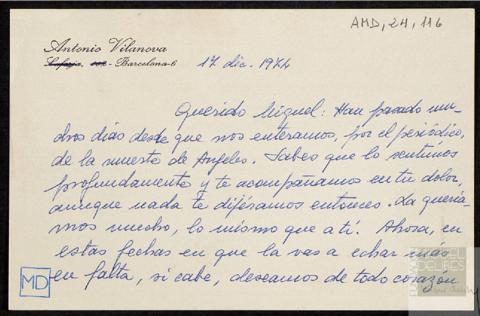 AMD, 24, 116
Antonio Vilanova
Barcelona-6
17 dic. 1974
Querido Miguel: Han pasado mu-
chos días desde que nos enteramos, por el periódico,
de la muerte de Angeles. Sabes que lo sentimos
profundamente y te acompañamos en tu dolor,
aunque nada te dijéramos entonces. La quería-
mos mucho, lo mismo que a ti. Ahora, en
estas fechas en que la vas a echar más
en falta, si cabe, deseamos de todo corazón
MD
MIGUEL
DELIBES